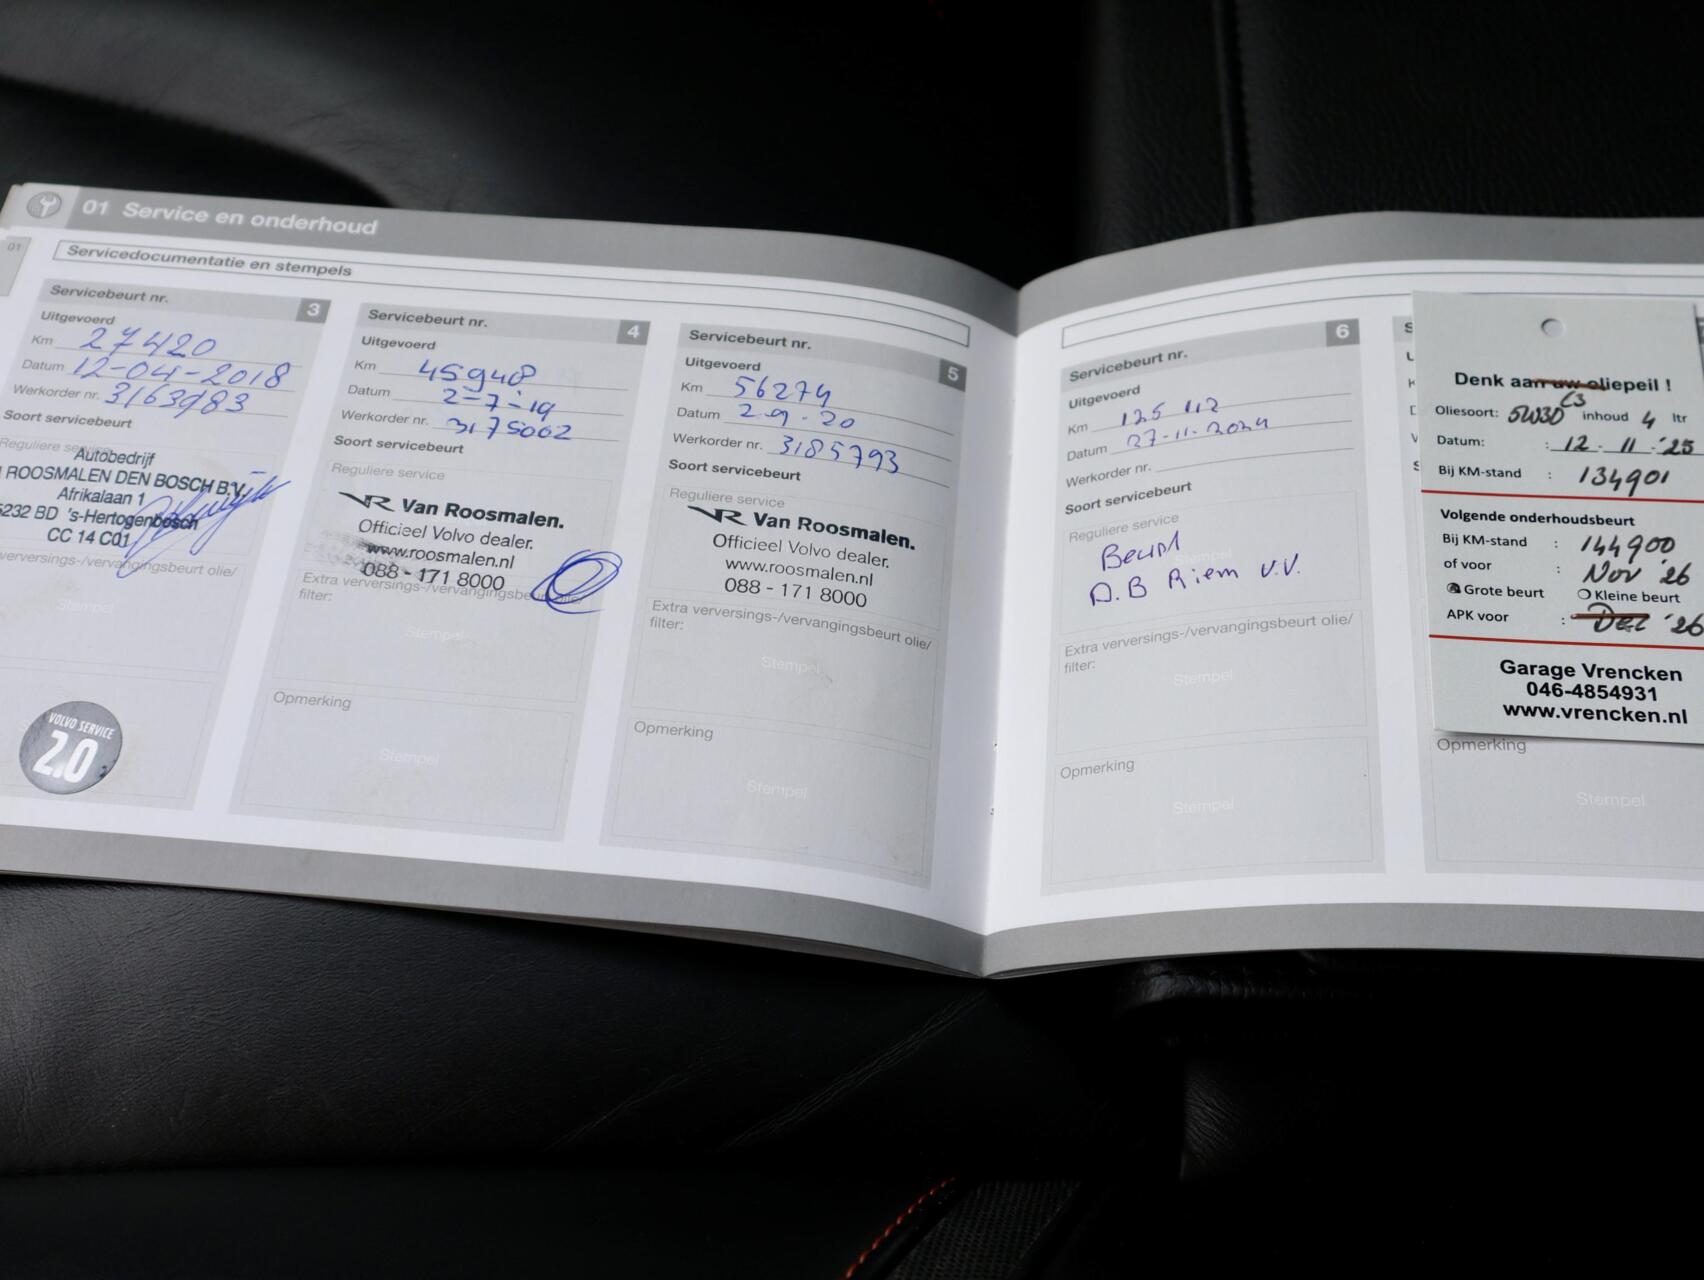 01 Service en onderhoud
01
Servicedocumentatie en stempels
Servicebeurt nr. 3
Uitgevoerd
Km 27420
Datum 12-04-2018
Werkorder nr. 3163983
Soort servicebeurt
Reguliere service
Autobedrijf
ROOSMALEN DEN BOSCH B.V.
Afrikalaan 1
5232 BD 's-Hertogenbosch
CC 14 C01
verversings-/vervangingsbeurt olie/
Stempel
VOLVO SERVICE
2.0
Servicebeurt nr. 4
Uitgevoerd
Km 45948
Datum 2-7-19
Werkorder nr. 3175002
Soort servicebeurt
Reguliere service
VR Van Roosmalen.
Officieel Volvo dealer.
www.roosmalen.nl
088 - 171 8000
Extra verversings-/vervangingsbeurt olie/
filter:
Stempel
Opmerking
Stempel
Servicebeurt nr. 5
Uitgevoerd
Km 56274
Datum 2-9-20
Werkorder nr. 3185793
Soort servicebeurt
Reguliere service
VR Van Roosmalen.
Officieel Volvo dealer.
www.roosmalen.nl
088 - 171 8000
Extra verversings-/vervangingsbeurt olie/
filter:
Stempel
Opmerking
Stempel
Servicebeurt nr. 6
Uitgevoerd
Km 125 112
Datum 27-11-2024
Werkorder nr.
Soort servicebeurt
Reguliere service
Stempel
Beurt
D.B Riem v.v.
Extra verversings-/vervangingsbeurt olie/
filter:
Stempel
Opmerking
Stempel
Denk aan uw oliepeil !
C3
Oliesoort: 5W30 inhoud 4 ltr
Datum: : 12-11-'25
Bij KM-stand : 134901
Volgende onderhoudsbeurt
Bij KM-stand : 144900
of voor : Nov '26
Grote beurt Kleine beurt
APK voor : Dec '26
Garage Vrencken
046-4854931
www.vrencken.nl
Opmerking
Stempel